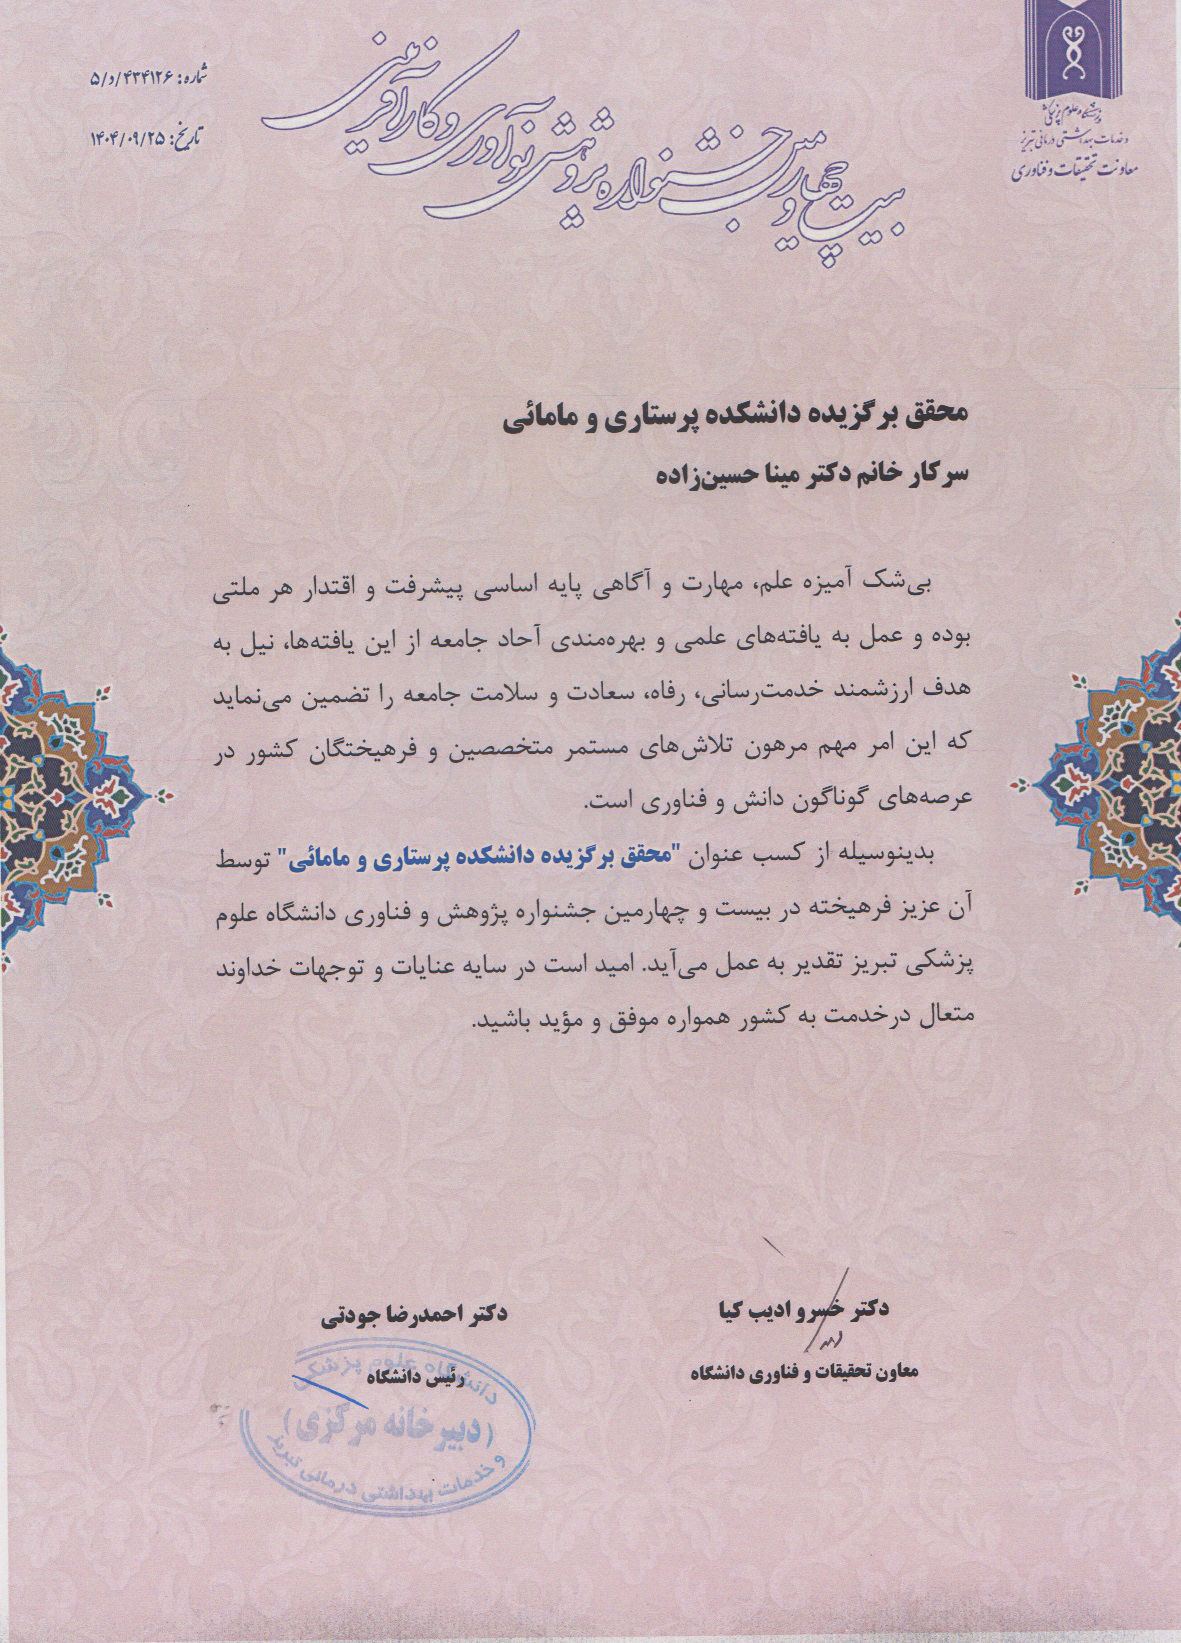 دانشگاه علوم پزشکی
و خدمات بهداشتی درمانی تبریز
معاونت تحقیقات و فناوری
شماره: ۵/د/۴۳۴۱۲۶
تاریخ: ۱۴۰۴/۰۹/۲۵
بیست و چهارمین جشنواره پژوهش نوآوری و کارآفرینی
محقق برگزیده دانشکده پرستاری و مامائی
سرکار خانم دکتر مینا حسین‌زاده
بی‌شک آمیزه علم، مهارت و آگاهی پایه اساسی پیشرفت و اقتدار هر ملتی
بوده و عمل به یافته‌های علمی و بهره‌مندی آحاد جامعه از این یافته‌ها، نیل به
هدف ارزشمند خدمت‌رسانی، رفاه، سعادت و سلامت جامعه را تضمین می‌نماید
که این امر مهم مرهون تلاش‌های مستمر متخصصین و فرهیختگان کشور در
عرصه‌های گوناگون دانش و فناوری است.
بدینوسیله از کسب عنوان "محقق برگزیده دانشکده پرستاری و مامائی" توسط
آن عزیز فرهیخته در بیست و چهارمین جشنواره پژوهش و فناوری دانشگاه علوم
پزشکی تبریز تقدیر به عمل می‌آید. امید است در سایه عنایات و توجهات خداوند
متعال درخدمت به کشور همواره موفق و مؤید باشید.
دکتر خسرو ادیب کیا
معاون تحقیقات و فناوری دانشگاه
دکتر احمدرضا جودتی
رئیس دانشگاه
دانشگاه علوم پزشکی
(دبیرخانه مرکزی)
و خدمات بهداشتی درمانی تبریز